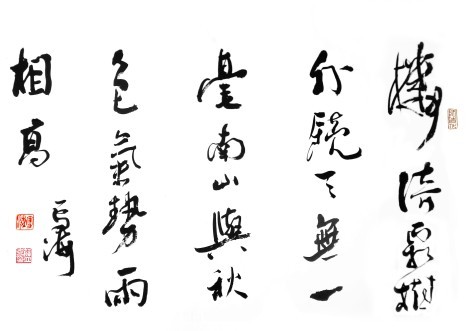 樓倚霜樹
外鏡天無一
毫南山與秋
色氣勢兩
相高